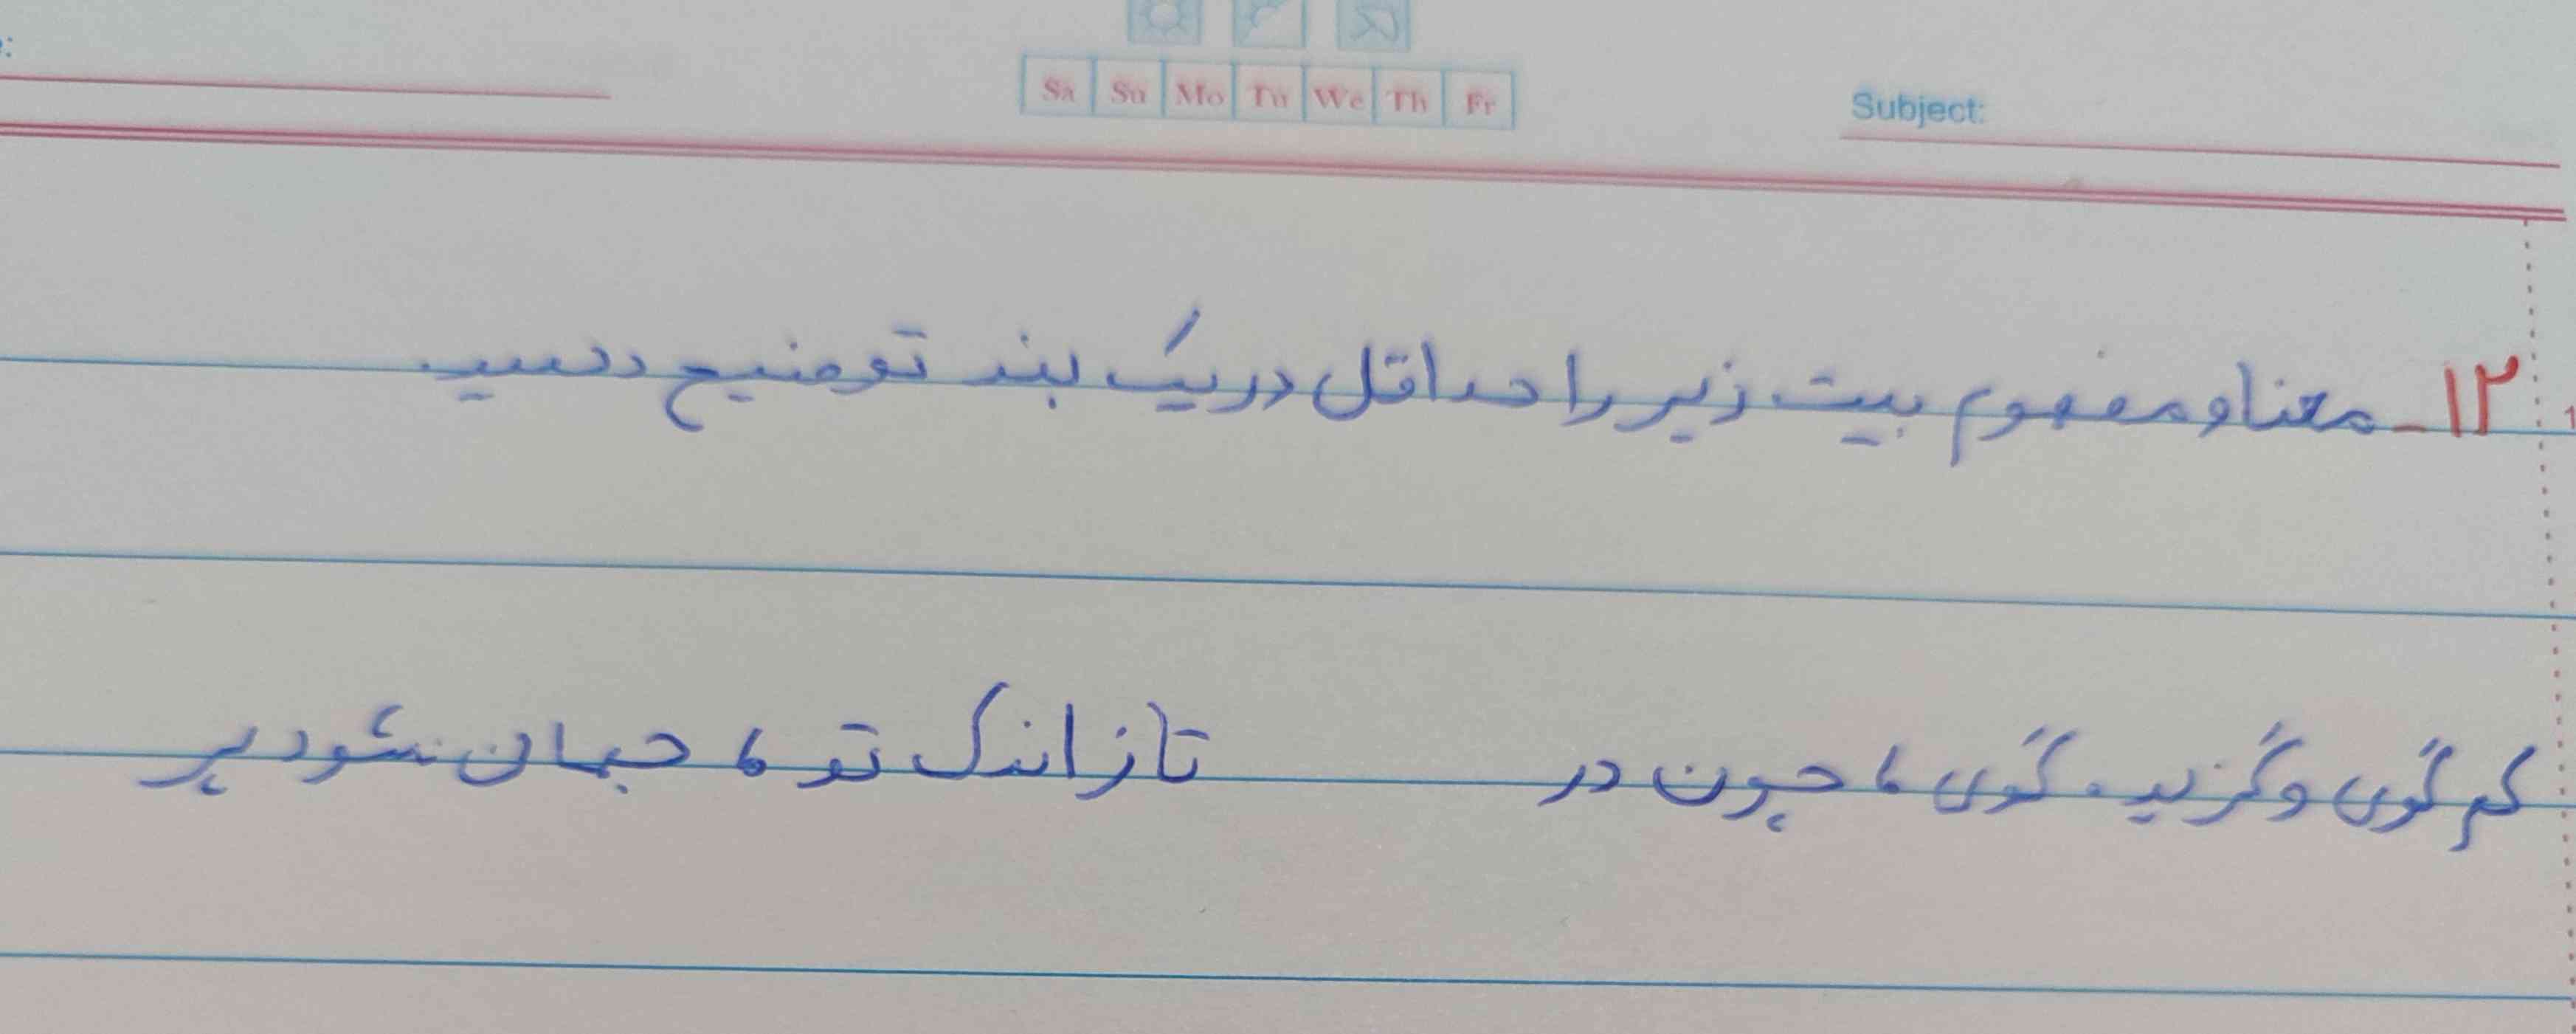 Sa Su Mo Tu We Th Fr
Subject:
۱۲_ معنا و مفهوم بیت زیر را حداقل در یک بند توضیح دهید.
کم گوی و گزیده گوی، چون در تا ز اندک تو، جهان شود پر